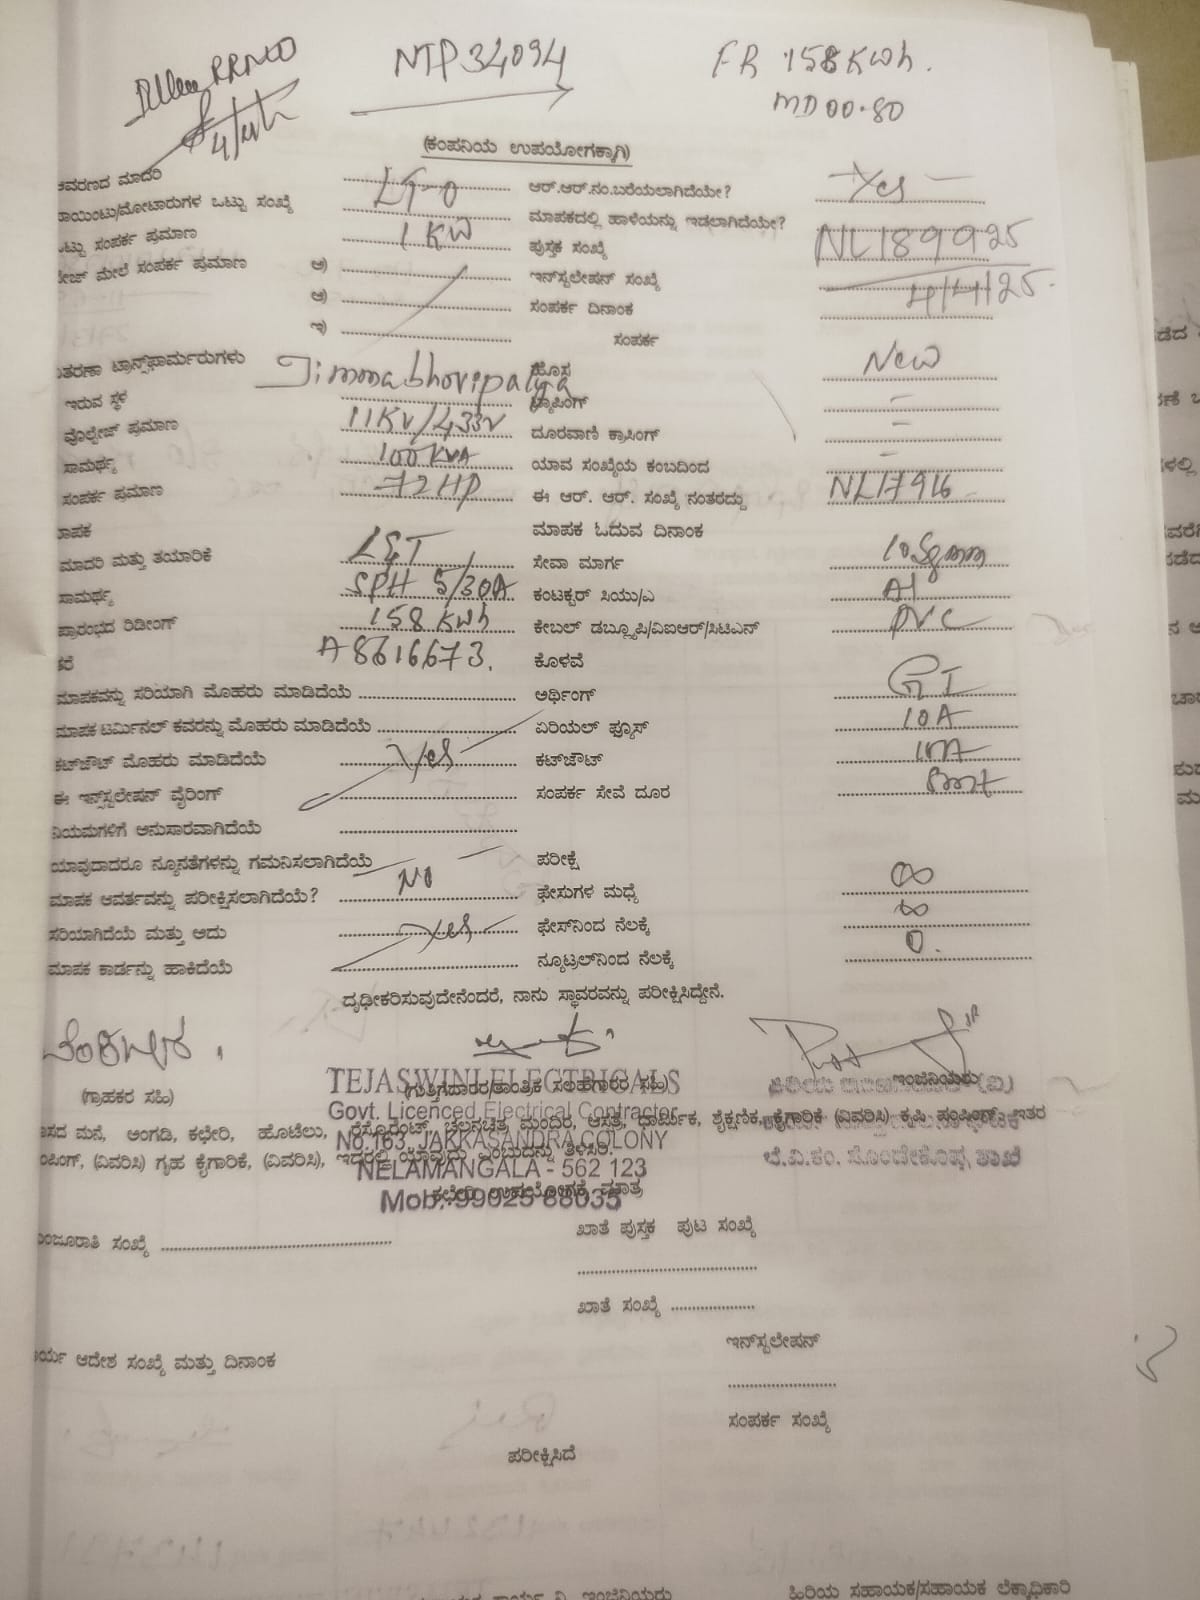 NTP34094 FR 158 KWh.
MD 00.80
(ಕಂಪನಿಯ ಉಪಯೋಗಕ್ಕಾಗಿ)
ಮಾದರಿ ಆರ್.ಆರ್.ನಂ.ಬರೆಯಲಾಗಿದೆಯೇ? Yes
ಒಟ್ಟು ಸಂಖ್ಯೆ ಮಾಪಕದಲ್ಲಿ ಹಾಳೆಯನ್ನು ಇಡಲಾಗಿದೆಯೇ?
ಸಂಪರ್ಕ ಪ್ರಮಾಣ 1 KW ಪುಸ್ತಕ ಸಂಖ್ಯೆ NL189925
ಮೇಲೆ ಸಂಪರ್ಕ ಪ್ರಮಾಣ ಅ) ಇನ್‌ಸ್ಟಲೇಷನ್ ಸಂಖ್ಯೆ
ಆ) ಸಂಪರ್ಕ ದಿನಾಂಕ 4/4/25.
ಇ) ಸಂಪರ್ಕ
ಟ್ರಾನ್ಸ್‌ಫಾರ್ಮರುಗಳು ಹೊಸ New
ಇರುವ ಸ್ಥಳ Timmabhovipalya ಟ್ಯಾಪಿಂಗ್ -
ವೊಲ್ಟೇಜ್ ಪ್ರಮಾಣ 11KV/433V ದೂರವಾಣಿ ಕ್ರಾಸಿಂಗ್ -
ಸಾಮರ್ಥ್ಯ 100 KVA ಯಾವ ಸಂಖ್ಯೆಯ ಕಂಬದಿಂದ -
ಸಂಪರ್ಕ ಪ್ರಮಾಣ 72 HP ಈ ಆರ್. ಆರ್. ಸಂಖ್ಯೆ ನಂತರದ್ದು NL17916
ಮಾಪಕ ಓದುವ ದಿನಾಂಕ
ಮಾದರಿ ಮತ್ತು ತಯಾರಿಕೆ L&T ಸೇವಾ ಮಾರ್ಗ 10Sqmm
ಸಾಮರ್ಥ್ಯ SPH 5/30A ಕಂಟಕ್ಟರ್ ಸಿಯು/ಎ Al
ಪ್ರಾರಂಭದ ರಿಡೀಂಗ್ 158 KWh ಕೇಬಲ್ ಡಬ್ಲ್ಯೂಪಿ/ವಿಐಆರ್/ಸಿಟಿಎನ್ PVC
A8616673. ಕೊಳವೆ
ಮಾಪಕವನ್ನು ಸರಿಯಾಗಿ ಮೊಹರು ಮಾಡಿದೆಯೆ ಅರ್ಥಿಂಗ್ GI
ಮಾಪಕ ಟರ್ಮಿನಲ್ ಕವರನ್ನು ಮೊಹರು ಮಾಡಿದೆಯೆ ಏರಿಯಲ್ ಫ್ಯೂಸ್ 10A
ಕಟ್‌ಔಟ್ ಮೊಹರು ಮಾಡಿದೆಯೆ Yes ಕಟ್‌ಔಟ್ 10A
ಈ ಇನ್ಸ್‌ಟಲೇಷನ್ ವೈರಿಂಗ್ ಸಂಪರ್ಕ ಸೇವೆ ದೂರ
ನಿಯಮಗಳಿಗೆ ಅನುಸಾರವಾಗಿದೆಯೆ
ಯಾವುದಾದರೂ ನ್ಯೂನತೆಗಳನ್ನು ಗಮನಿಸಲಾಗಿದೆಯೆ ಪರೀಕ್ಷೆ
ಮಾಪಕ ಆವರ್ತವನ್ನು ಪರೀಕ್ಷಿಸಲಾಗಿದೆಯೆ? No ಫೇಸುಗಳ ಮಧ್ಯೆ ∞
ಸರಿಯಾಗಿದೆಯೆ ಮತ್ತು ಅದು Yes ಫೇಸ್‌ನಿಂದ ನೆಲಕ್ಕೆ ∞
ಮಾಪಕ ಕಾರ್ಡನ್ನು ಹಾಕಿದೆಯೆ ನ್ಯೂಟ್ರಲ್‌ನಿಂದ ನೆಲಕ್ಕೆ 0.
ದೃಢೀಕರಿಸುವುದೇನೆಂದರೆ, ನಾನು ಸ್ಥಾವರವನ್ನು ಪರೀಕ್ಷಿಸಿದ್ದೇನೆ.
(ಗ್ರಾಹಕರ ಸಹಿ) (ಗುತ್ತಿಗೆದಾರರ/ತಾಂತ್ರಿಕ ಸಲಹೆಗಾರರ ಸಹಿ) ಇಂಜಿನಿಯರು
TEJASWINI ELECTRICALS
Govt. Licenced Electrical Contractor
No.163, JAKKASANDRA COLONY
NELAMANGALA - 562 123
Mob.:99025 88035
ಬೆ.ವಿ.ಕಂ. ಸೋಂದೇಕೊಪ್ಪ ಶಾಖೆ
ಮನೆ, ಅಂಗಡಿ, ಕಛೇರಿ, ಹೊಟೆಲು, ರೆಸ್ಟೋರೆಂಟ್, ಚಲನಚಿತ್ರ ಮಂದಿರ, ಆಸ್ಪತ್ರೆ, ಧಾರ್ಮಿಕ, ಶೈಕ್ಷಣಿಕ, ಕೈಗಾರಿಕೆ (ವಿವರಿಸಿ) ಕೃಷಿ ಪಂಪಿಂಗ್, ಇತರ
(ವಿವರಿಸಿ) ಗೃಹ ಕೈಗಾರಿಕೆ, (ವಿವರಿಸಿ), ಇದರಲ್ಲಿ ಯಾವುದು ಎಂಬುದನ್ನು ತಿಳಿಸಿರಿ.
ಕಛೇರಿ ಉಪಯೋಗಕ್ಕೆ ಮಾತ್ರ
ಸಂಖ್ಯೆ ಖಾತೆ ಪುಸ್ತಕ ಪುಟ ಸಂಖ್ಯೆ
ಖಾತೆ ಸಂಖ್ಯೆ
ಆದೇಶ ಸಂಖ್ಯೆ ಮತ್ತು ದಿನಾಂಕ ಇನ್‌ಸ್ಟಲೇಷನ್
ಸಂಪರ್ಕ ಸಂಖ್ಯೆ
ಪರೀಕ್ಷಿಸಿದೆ
ಹಿರಿಯ ಸಹಾಯಕ/ಸಹಾಯಕ ಲೆಕ್ಕಾಧಿಕಾರಿ